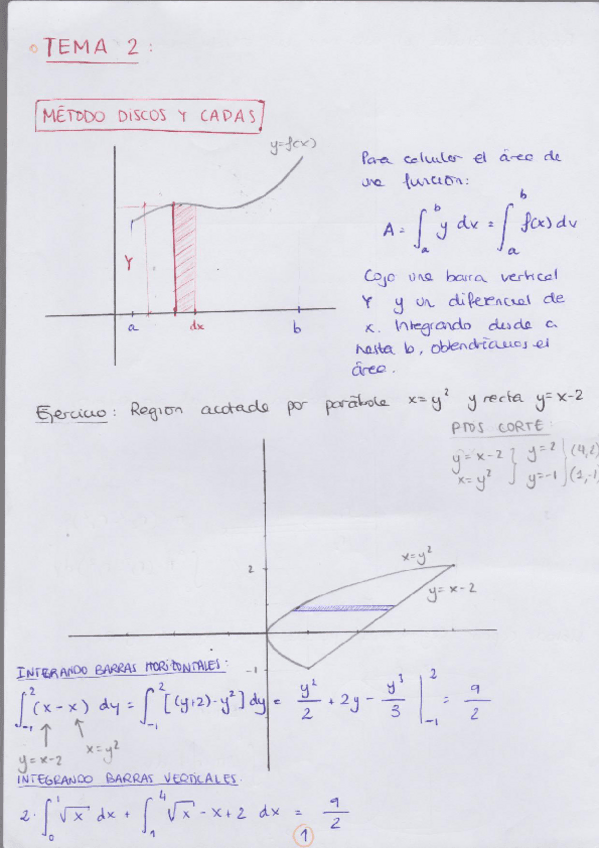 TEMA 2 :
MÉTODO DISCOS Y CAPAS
y=f(x)
Y
a
dx
b
Para calcular el área de
una función:
A = ∫_a^b y dx = ∫_a^b f(x) dx
Cojo una barra vertical
Y y un diferencial de
x. Integrando desde a
hasta b, obtendríamos el
área.
Ejercicio: Región acotada por parábola x=y² y recta y=x-2
PTOS CORTE:
y=x-2 } y=2 } (4,2)
x=y² } y=-1 } (1,-1)
x=y²
y=x-2
2
-1
INTEGRANDO BARRAS HORIZONTALES:
∫_{-1}^{2} (x-x) dy = ∫_{-1}^{2} [(y+2)-y²] dy = y²/2 + 2y - y³/3 |_{-1}^{2} = 9/2
y=x-2
x=y²
INTEGRANDO BARRAS VERTICALES.
2·∫_0^1 √x dx + ∫_1^4 √x - x + 2 dx = 9/2
1